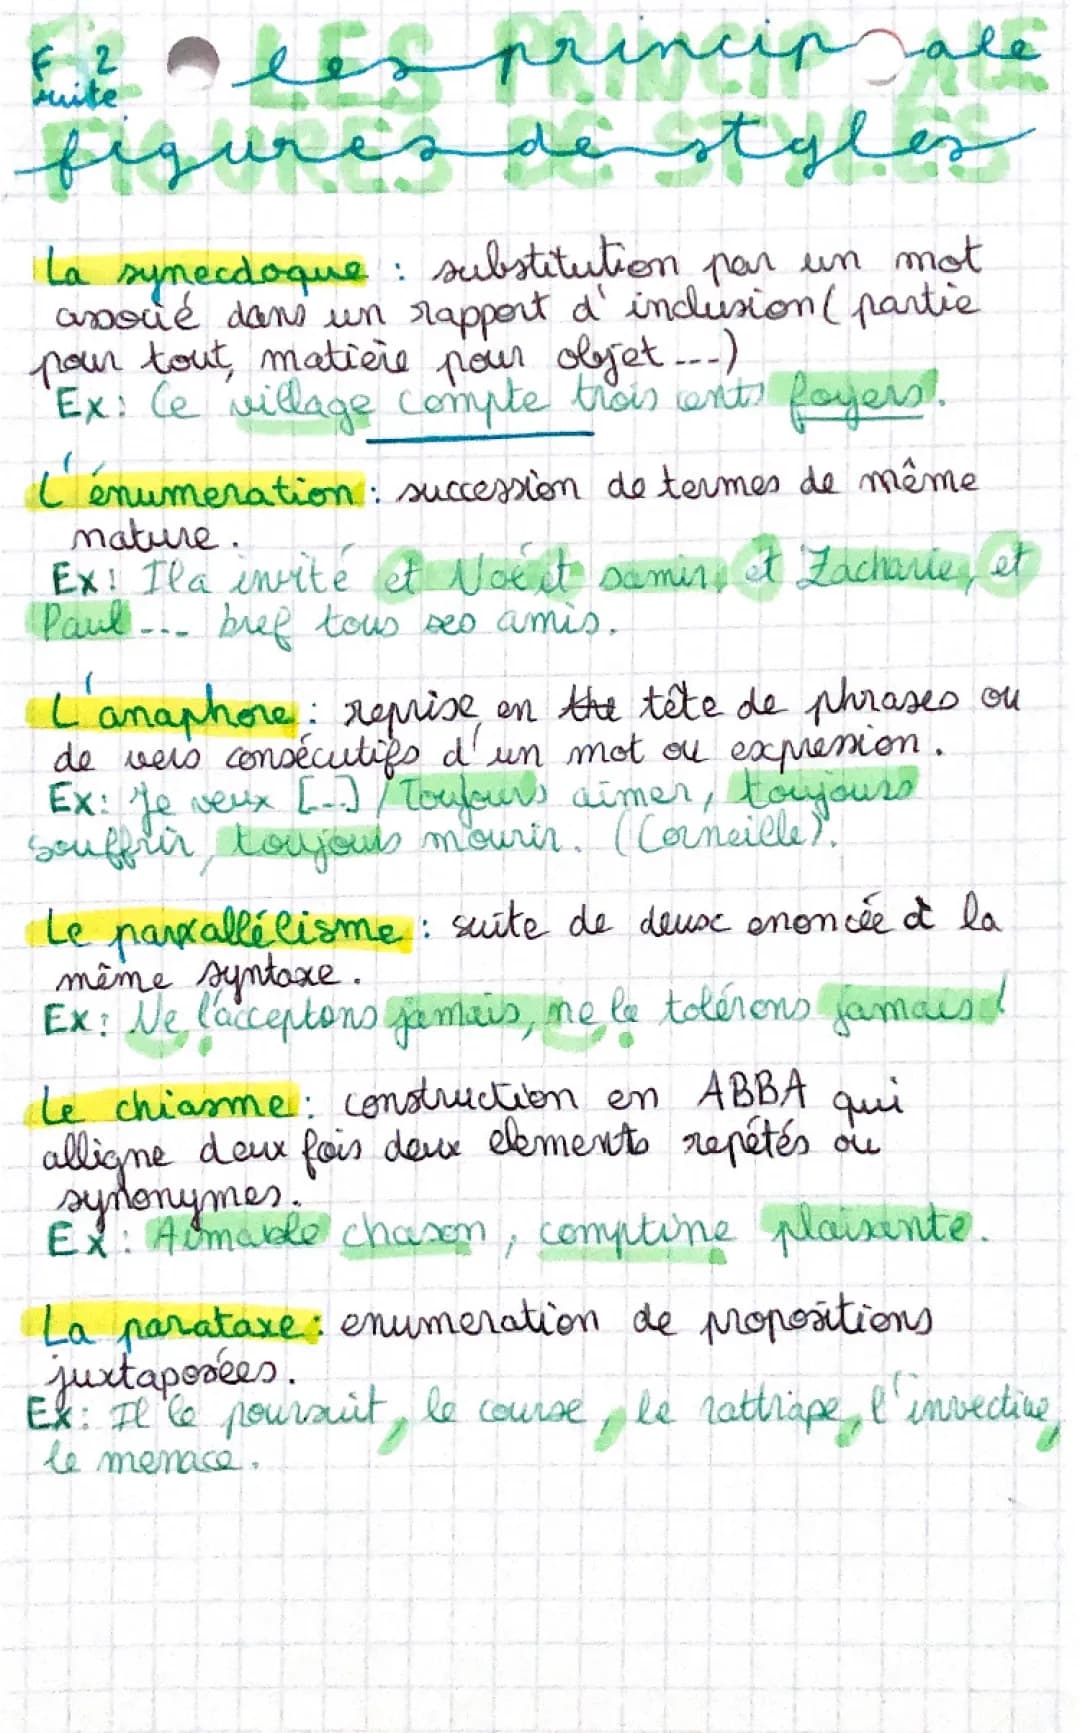 F 2 les principale
suite
figures de styles
LES PRINCIPALE
FIGURES DE STYLES
La synecdoque : substitution par un mot
associé dans un rapport d'inclusion ( partie
pour tout, matière pour objet ...)
Ex : Ce village compte trois cents foyers.
L'énumeration : succession de termes de même
nature.
Ex : Il a invité et Noé et Samir, et Zacharie, et
Paul ... bref tous ses amis.
L'anaphore : reprise en the tête de phrases ou
de vers consécutifs d'un mot ou expression.
Ex : Je veux [...] / Toujours aimer, toujours
souffrir, toujours mourir. (Corneille).
Le parallélisme : suite de deux enoncée à la
même syntaxe.
Ex : Ne l'acceptons jamais, ne le tolérons jamais !
Le chiasme : construction en ABBA qui
alligne deux fois deux elements repétés ou
synonymes.
Ex : Aimable chason, comptine plaisante.
La parataxe : enumeration de propositions
juxtaposées.
Ex : Il le poursuit, le course, le rattrape, l'invective,
le menace.